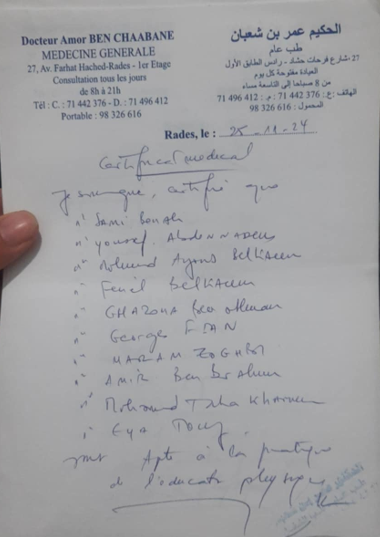 Docteur Amor BEN CHAABANE
MEDECINE GENERALE
27, Av. Farhat Hached-Rades - 1er Etage
Consultation tous les jours
de 8h à 21h
Tél : C. : 71 442 376 - D. : 71 496 412
Portable : 98 326 616
الحكيم عمر بن شعبان
طب عام
27 شارع فرحات حشاد - رادس الطابق الأول
العيادة مفتوحة كل يوم
من 8 صباحا إلى التاسعة مساء
الهاتف : ع : 71 442 376 : م : 71 496 412
المحمول : 98 326 616
Rades, le : 25-11-24
Certificat medical
Je soussigné, certifie que
Sami
Youssef
Mohamed Ayoub Belkacem
Belkacem
GHAZOUA Ben othman
Georges
MARIAM ZOGHBI
AMIR Ben Brahim
Mohamed Taha
Eya
sont Apte à la pratique
de l'éducation physique